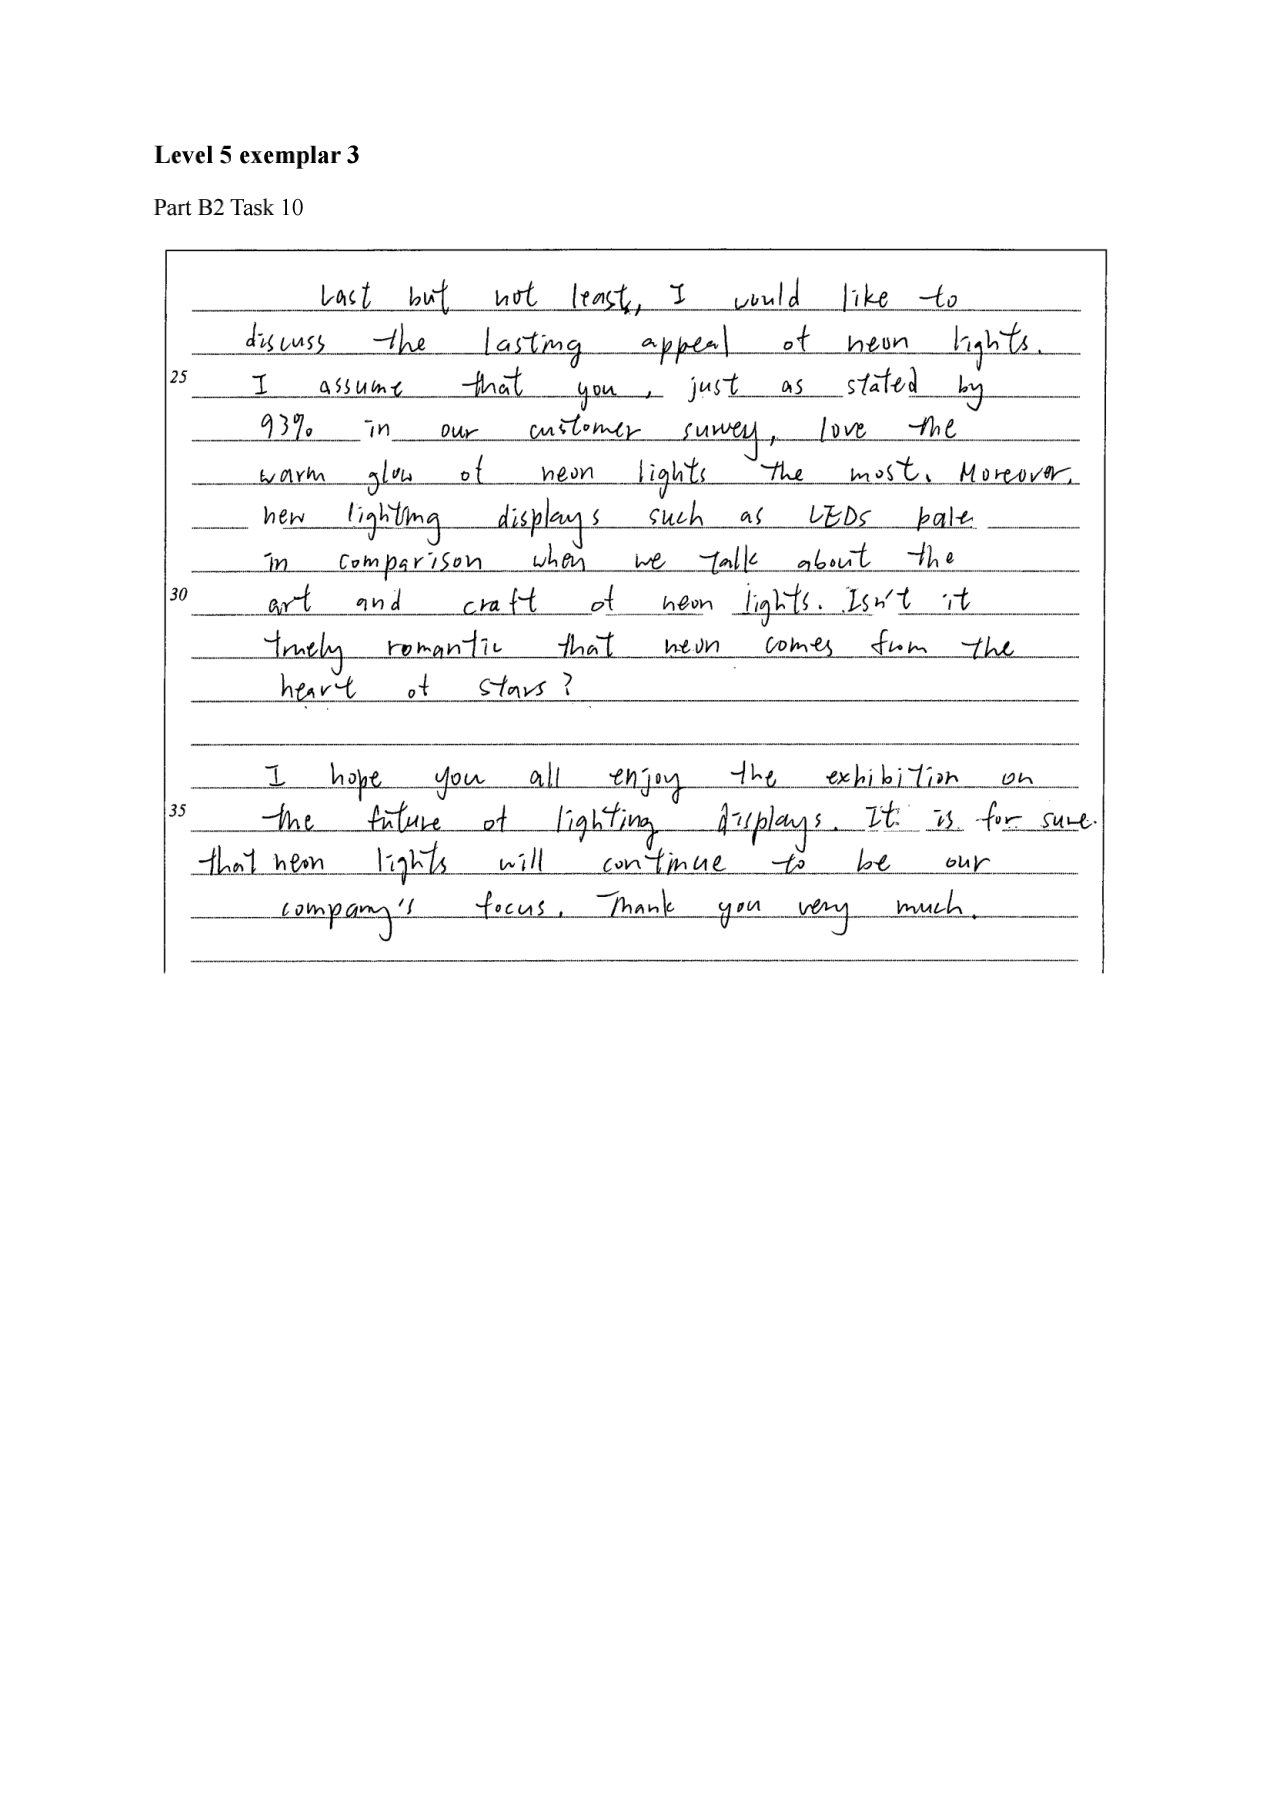 Level 5 exemplar 3
Part B2 Task 10
Last but not least, I would like to
discuss the lasting appeal of neon lights.
25 I assume that you, just as stated by
93% in our customer survey, love the
warm glow of neon lights the most. Moreover,
new lighting displays such as LEDs pale
in comparison when we talk about the
30 art and craft of neon lights. Isn't it
truely romantic that neon comes from the
heart of stars?
I hope you all enjoy the exhibition on
35 the future of lighting displays. It is for sure
that neon lights will continue to be our
company's focus. Thank you very much.